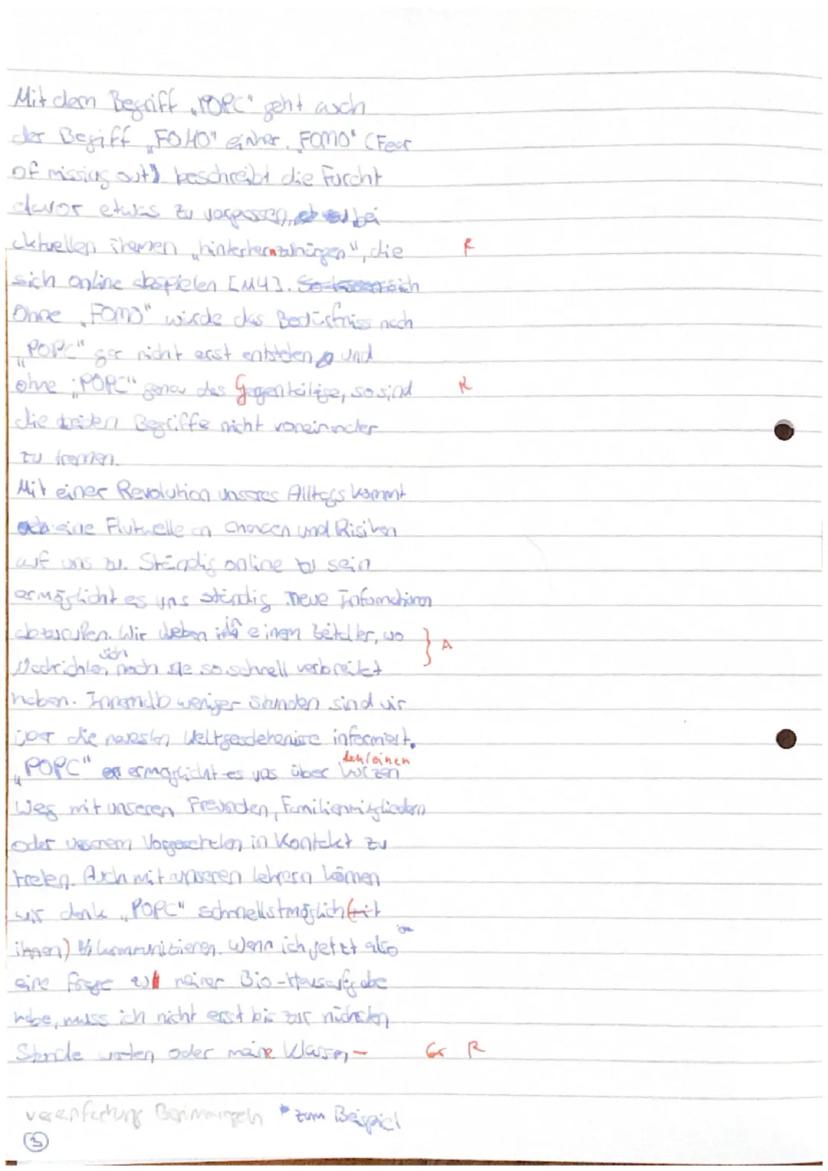 Mit dem Begriff „POPC" geht auch
der Begriff „FOMO" einher. „FOMO" (Fear
of missing out) beschreibt die Furcht
davor etwas zu verpassen, bei
aktuellen Themen „hinterherzuhängen", die R
sich online abspielen [M4].
Ohne „FOMO" würde das Bedürfniss nach
„POPC" gar nicht erst entstehen und
ohne „POPC" genau das Gegenteilige, so sind R
die beiden Begriffe nicht voneinander
zu trennen.
Mit einer Revolution unseres Alltags kommt
eine Flutwelle an Chancen und Risiken
auf uns zu. Ständig online zu sein
ermöglicht es uns ständig neue Informationen
abzurufen. Wir leben in einem Zeitalter, wo A
Nachrichten sich noch nie so schnell verbreitet
haben. Innerhalb weniger Stunden sind wir
über die neuesten Weltgeschehenisse informiert.
„POPC" ermöglicht es uns über den/einen kurzen
Weg mit unseren Freunden, Familienmitgliedern
oder unserem Vorgesetzten in Kontakt zu
treten. Auch mit unseren Lehrern können
wir dank „POPC" schnellstmöglich (mit
ihnen) kommunizieren. Wenn ich jetzt also
eine Frage zu meiner Bio-Hausaufgabe
habe, muss ich nicht erst bis zur nächsten
Stunde warten oder meine Klassen- Gr R
*zum Beispiel
3